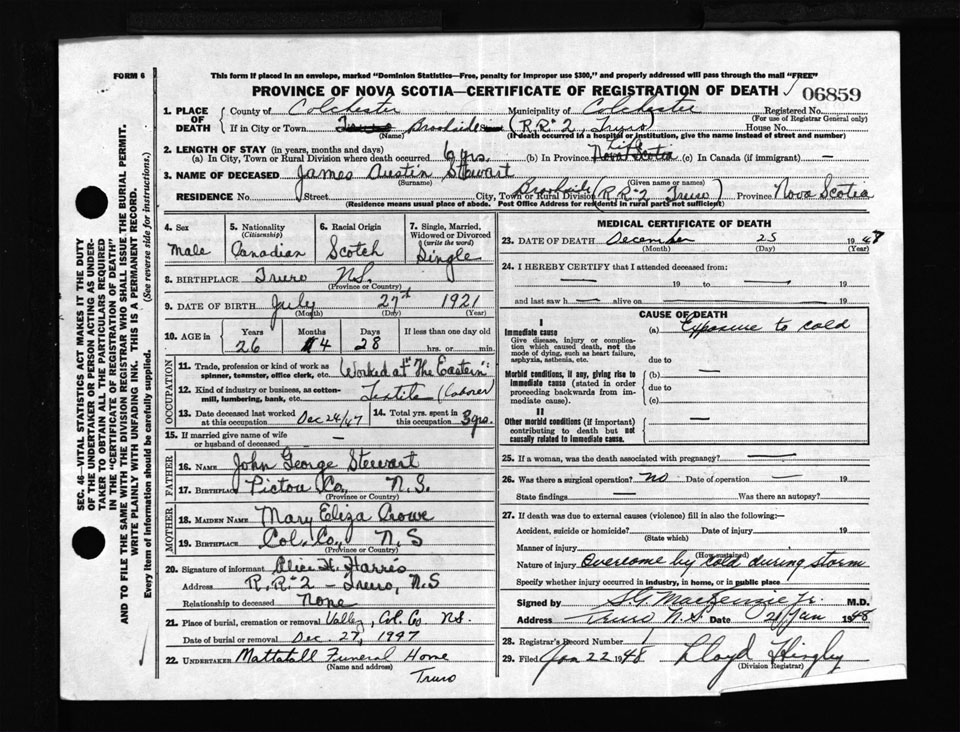 FORM 6
This form if placed in an envelope, marked "Dominion Statistics—Free, penalty for improper use $300," and properly addressed will pass through the mail "FREE"
PROVINCE OF NOVA SCOTIA—CERTIFICATE OF REGISTRATION OF DEATH 06859
1. PLACE OF DEATH County of Colchester Municipality of Colchester Registered No.
(For use of Registrar General only)
If in City or Town Truro Brookside (R.R. #2, Truro) House No.
(Name) (If death occurred in a hospital or institution, give the name instead of street and number)
2. LENGTH OF STAY (in years, months and days)
(a) In City, Town or Rural Division where death occurred 6 yrs. (b) In Province Nova Scotia Life (c) In Canada (if immigrant) —
3. NAME OF DECEASED James Austin Stewart
(Surname) (Given name or names)
RESIDENCE No. Street City, Town or Rural Division Brookside (R.R. #2 Truro) Province Nova Scotia
(Residence means usual place of abode. Post Office Address for residents in rural parts not sufficient)
4. Sex
male
5. Nationality
(Citizenship)
Canadian
6. Racial Origin
Scotch
7. Single, Married, Widowed or Divorced
(write the word)
Single
8. BIRTHPLACE Truro N.S.
(Province or Country)
9. DATE OF BIRTH July 27 1921
(Month) (Day) (Year)
10. AGE in Years Months Days If less than one day old
26 4 28 hrs. or min.
OCCUPATION
11. Trade, profession or kind of work as spinner, teamster, office clerk, etc. Worked at The Eastern
12. Kind of industry or business, as cotton-mill, lumbering, bank, etc. Textile (Laborer)
13. Date deceased last worked at this occupation Dec 24/47
14. Total yrs. spent in this occupation 3 yrs.
15. If married give name of wife or husband of deceased —
FATHER
16. NAME John George Stewart
17. BIRTHPLACE Pictou Co., N.S.
(Province or Country)
MOTHER
18. MAIDEN NAME Mary Eliza Crowe
19. BIRTHPLACE Col. Co., N.S
(Province or Country)
20. Signature of informant Alice H. Harris
Address R.R. #2 - Truro, N.S
Relationship to deceased None
21. Place of burial, cremation or removal Valley, Col. Co N.S.
Date of burial or removal Dec. 27, 1947
22. UNDERTAKER Mattatall Funeral Home
(Name and address)
Truro
MEDICAL CERTIFICATE OF DEATH
23. DATE OF DEATH December 25 1947
(Month) (Day) (Year)
24. I HEREBY CERTIFY that I attended deceased from:
— 19 to — 19
and last saw h — alive on — 19
CAUSE OF DEATH
I
Immediate cause (a) Exposure to cold
Give disease, injury or complication which caused death, not the mode of dying, such as heart failure, asphyxia, asthenia, etc.
due to
Morbid conditions, if any, giving rise to immediate cause (stated in order proceeding backwards from immediate cause).
(b) —
due to
(c)
II
Other morbid conditions (if important) contributing to death but not causally related to immediate cause.
—
25. If a woman, was the death associated with pregnancy? —
26. Was there a surgical operation? no Date of operation — 19
State findings — Was there an autopsy?
27. If death was due to external causes (violence) fill in also the following:—
Accident, suicide or homicide? Date of injury 19
(State which)
Manner of injury
(How sustained)
Nature of injury Overcome by cold during storm
Specify whether injury occurred in industry, in home, or in public place
Signed by S.G. MacKenzie Jr. M.D.
Address Truro N.S. Date 21 Jan 1948
28. Registrar's Record Number
29. Filed Jan 22 1948 Lloyd Hingley
(Division Registrar)
SEC. 46—VITAL STATISTICS ACT MAKES IT THE DUTY
OF THE UNDERTAKER OR PERSON ACTING AS UNDER-
TAKER TO OBTAIN ALL THE PARTICULARS REQUIRED
IN THE "CERTIFICATE OF REGISTRATION OF DEATH"
AND TO FILE THE SAME WITH THE DIVISION REGISTRAR WHO SHALL ISSUE THE BURIAL PERMIT.
WRITE PLAINLY WITH UNFADING INK. THIS IS A PERMANENT RECORD.
Every item of information should be carefully supplied. (See reverse side for instructions.)